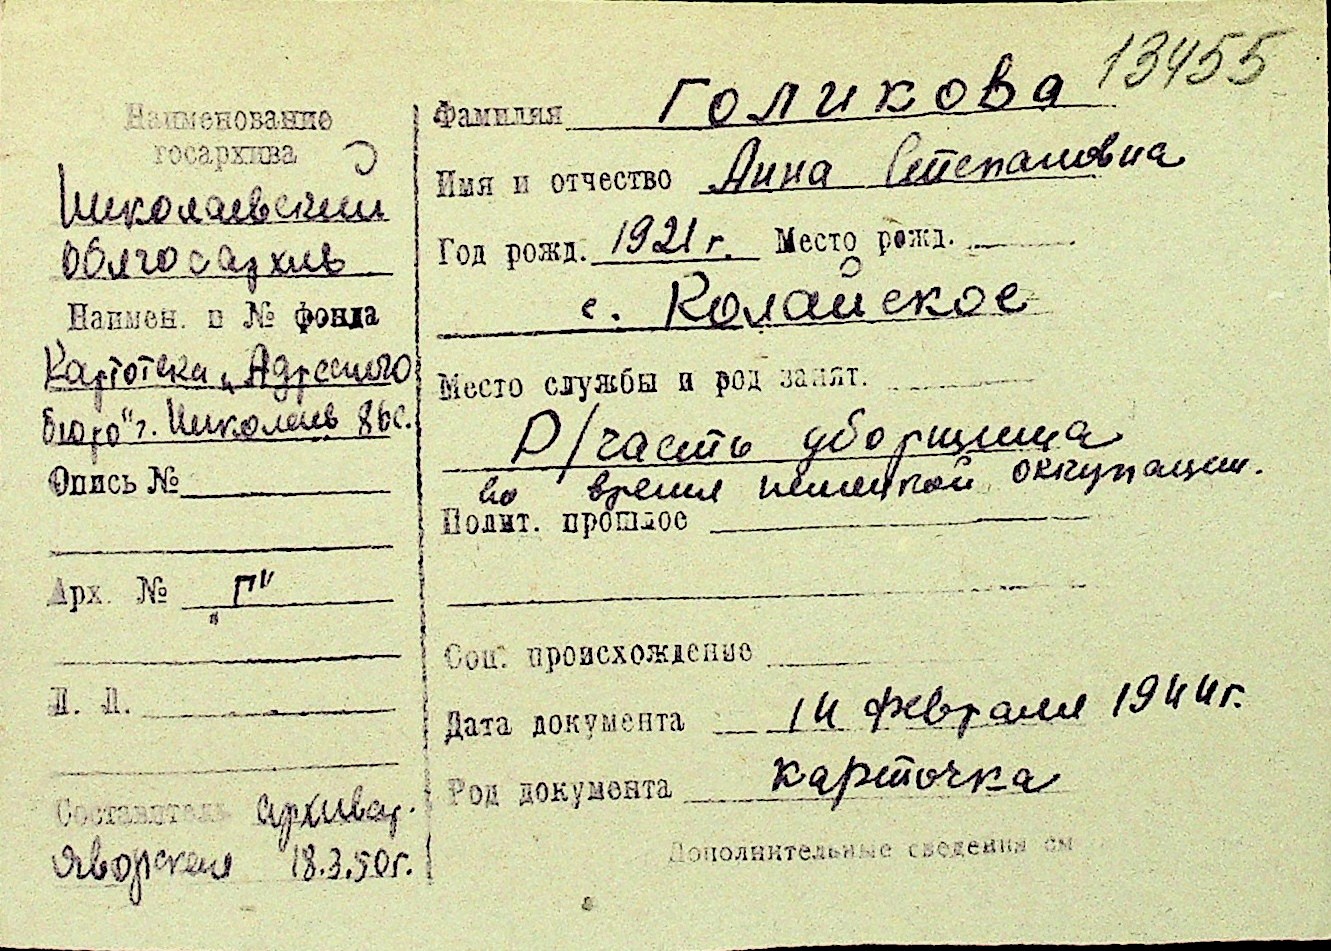 13455
Наименование
госархива
Николаевский
облгосархив
Наимен. и № фонда
Картотека „Адресного
бюро" г. Николаев 86с.
Опись №
Арх. № „Г"
Л. Л.
Составитель архивар.
Яворская 18.3.50г.
Фамилия Голикова
Имя и отчество Анна Степановна
Год рожд. 1921 г. Место рожд.
с. Колайское
Место службы и род занят.
Р/часть уборщица
во время немецкой оккупации.
Полит. прошлое
Соц. происхождение
Дата документа 14 февраля 1944г.
Род документа карточка
Дополнительные сведения см